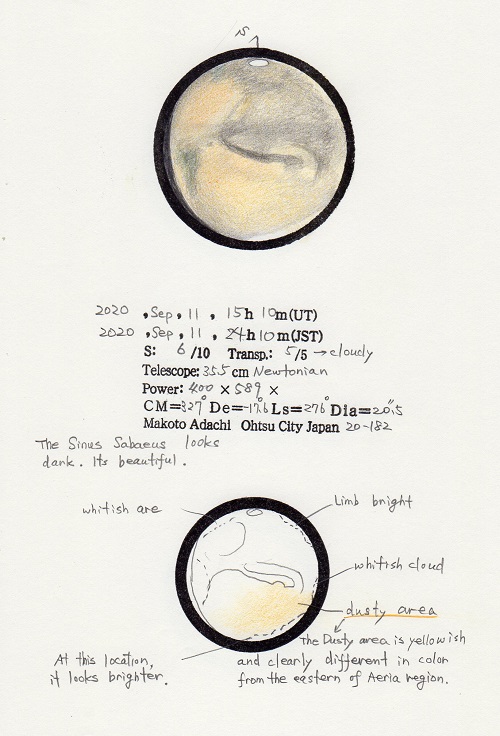 S
2020 , Sep , 11 , 15h 10m(UT)
2020 , Sep , 11 , 24h 10m(JST)
S: 6 /10 Transp.: 5/5 → cloudy
Telescope: 35.5 cm Newtonian
Power: 400 × 589 ×
CM=327° De=-17.6 Ls=276° Dia=20".5
Makoto Adachi Ohtsu City Japan 20-182
The Sinus Sabaeus looks
dark. Its beautiful.
whitish are
Limb bright
whitish cloud
dusty area
The Dusty area is yellowish
and clearly different in color
from the eastern of Aeria region.
At this location,
it looks brighter.